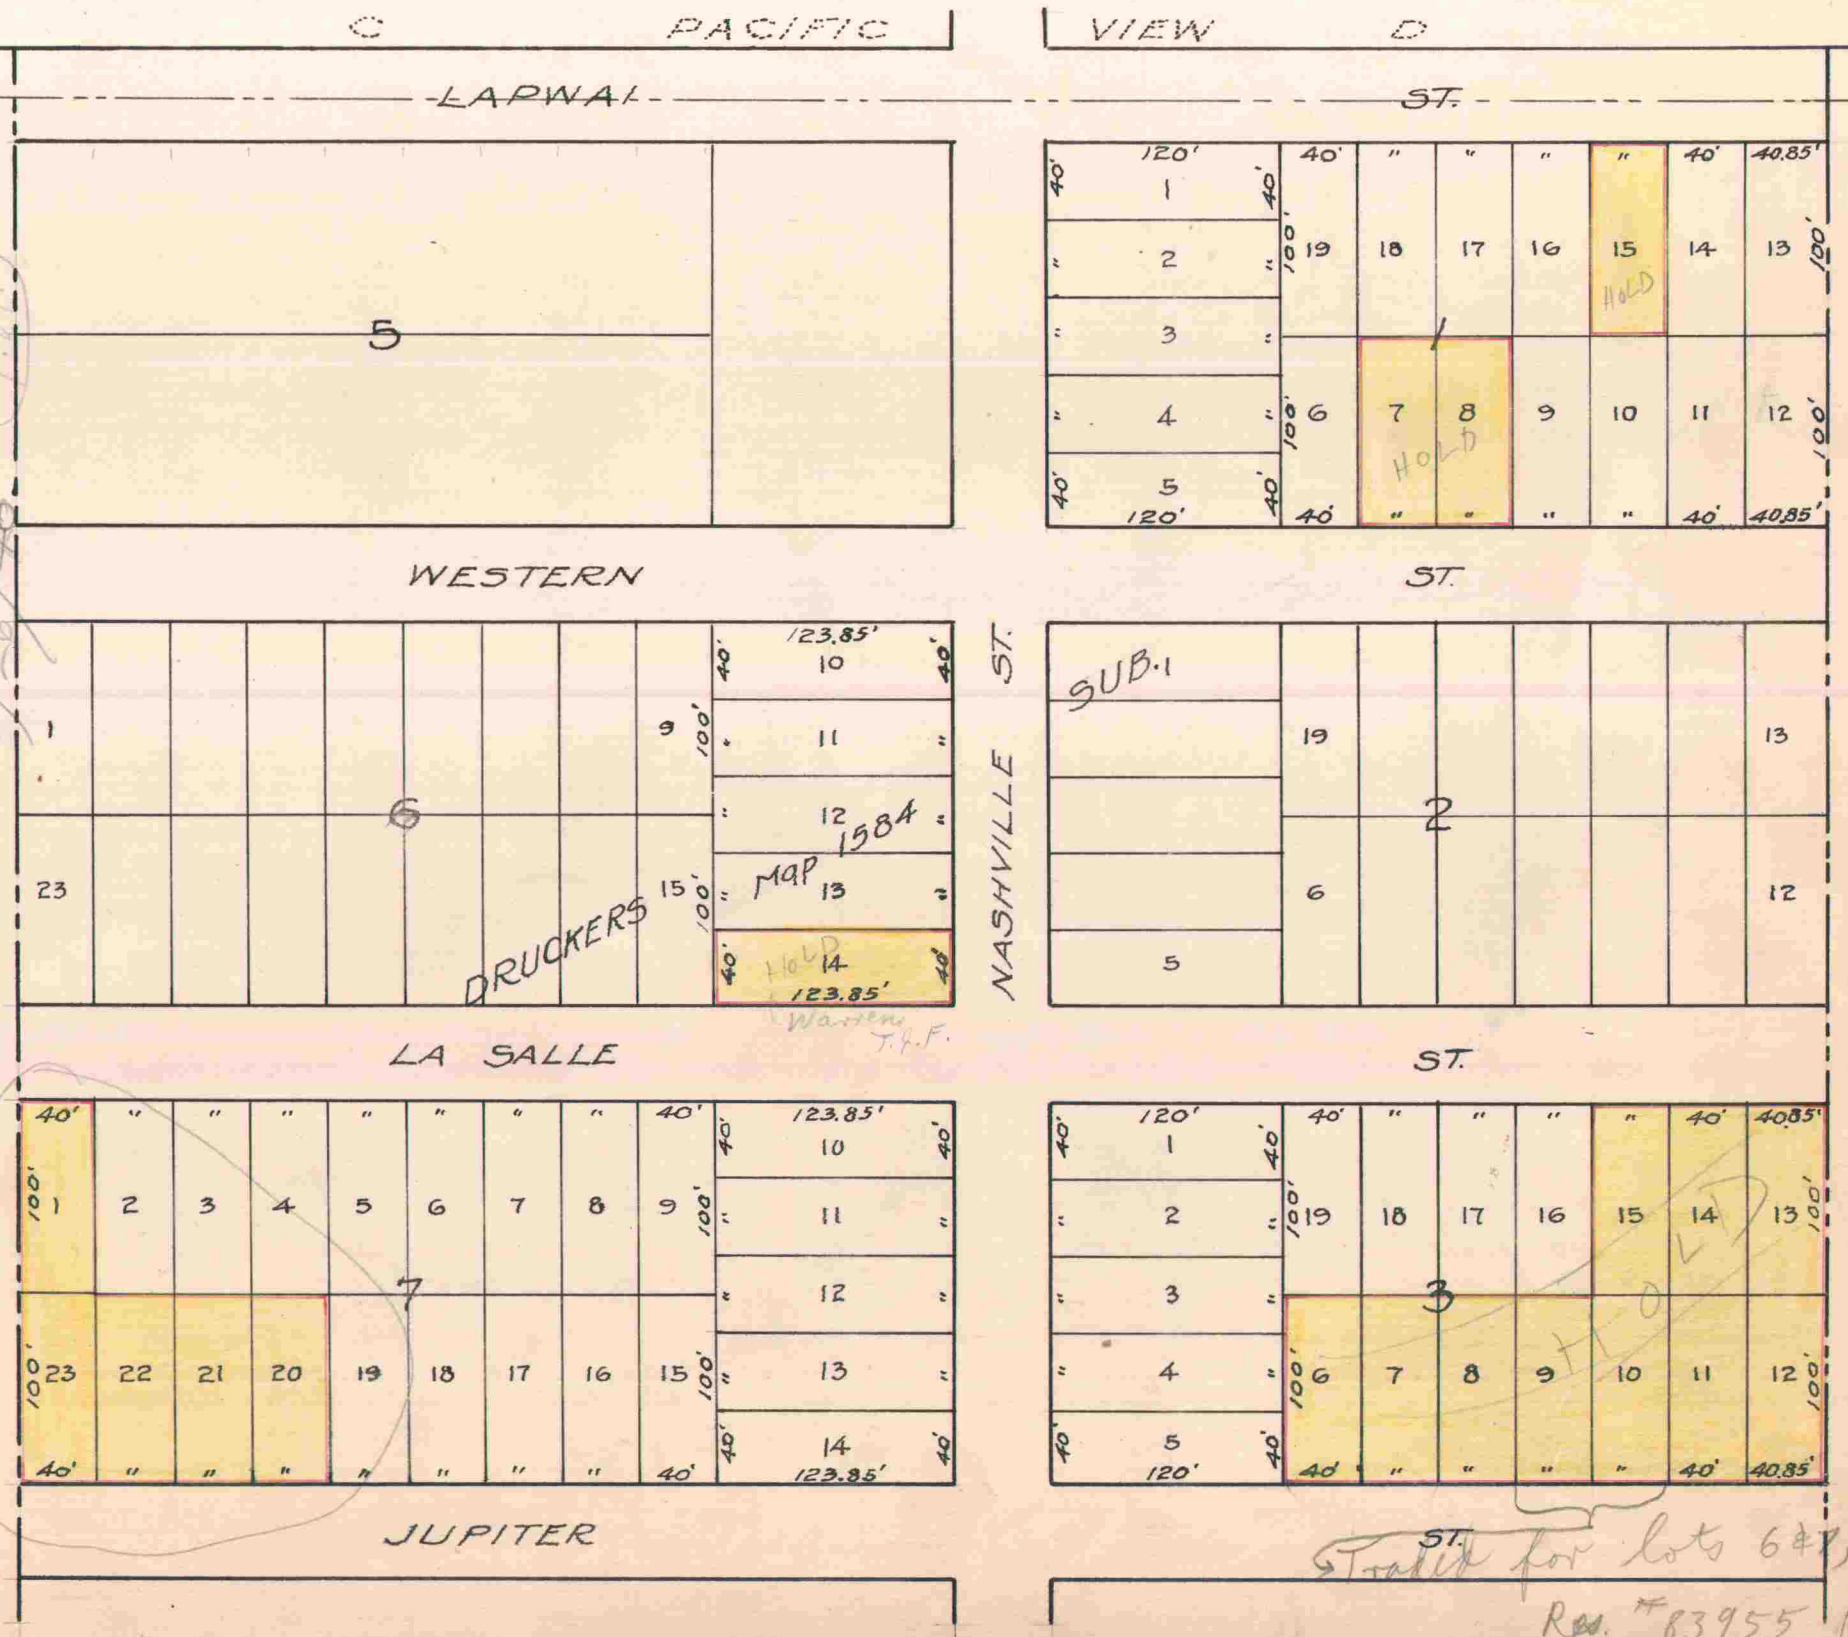 C PACIFIC VIEW D
LAPWAI ST.
5
120' 40' " " " " 40' 40.85'
40' 1 40'
" 2 " 100' 19 18 17 16 15 14 13 100'
HOLD
" 3 "
1
" 4 " 100' 6 7 8 9 10 11 12 100'
HOLD
40' 5 40'
120' 40' " " " " 40' 40.85'
WESTERN ST.
123.85'
40' 10 40'
1 9 100' " 11 "
6
" 12 "
23 15 100' " 13 "
DRUCKERS MAP 1584
HOLD
40' 14 40'
123.85'
Warren
T.&F.
NASHVILLE ST.
SUB. 1
19 13
2
6 12
5
LA SALLE ST.
40' " " " " " " " 40' 123.85'
40' 10 40'
100' 1 2 3 4 5 6 7 8 9 100' " 11 "
7
" 12 "
100' 23 22 21 20 19 18 17 16 15 100' " 13 "
40' 14 40'
40' " " " " " " " 40' 123.85'
120' 40' " " " " 40' 40.85'
40' 1 40'
" 2 " 100' 19 18 17 16 15 14 13 100'
" 3 "
3
HOLD
" 4 " 100' 6 7 8 9 10 11 12 100'
40' 5 40'
120' 40' " " " " 40' 40.85'
JUPITER ST.
Traded for lots 6 &
Res. # 83955